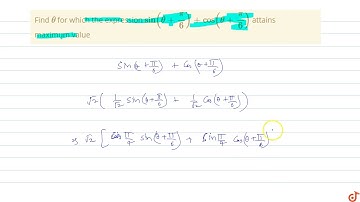 Find θ for which the expression sin(θ + π/6) + cos(θ + π/6) attains
maximum value
Sin(θ+π/6) + Cos(θ+π/6)
√2( 1/√2 Sin(θ+π/6) + 1/√2 Cos(θ+π/6))
⇒ √2 [ Cos π/4 Sin(θ+π/6) + Sin π/4 Cos(θ+π/6)
doubtnut